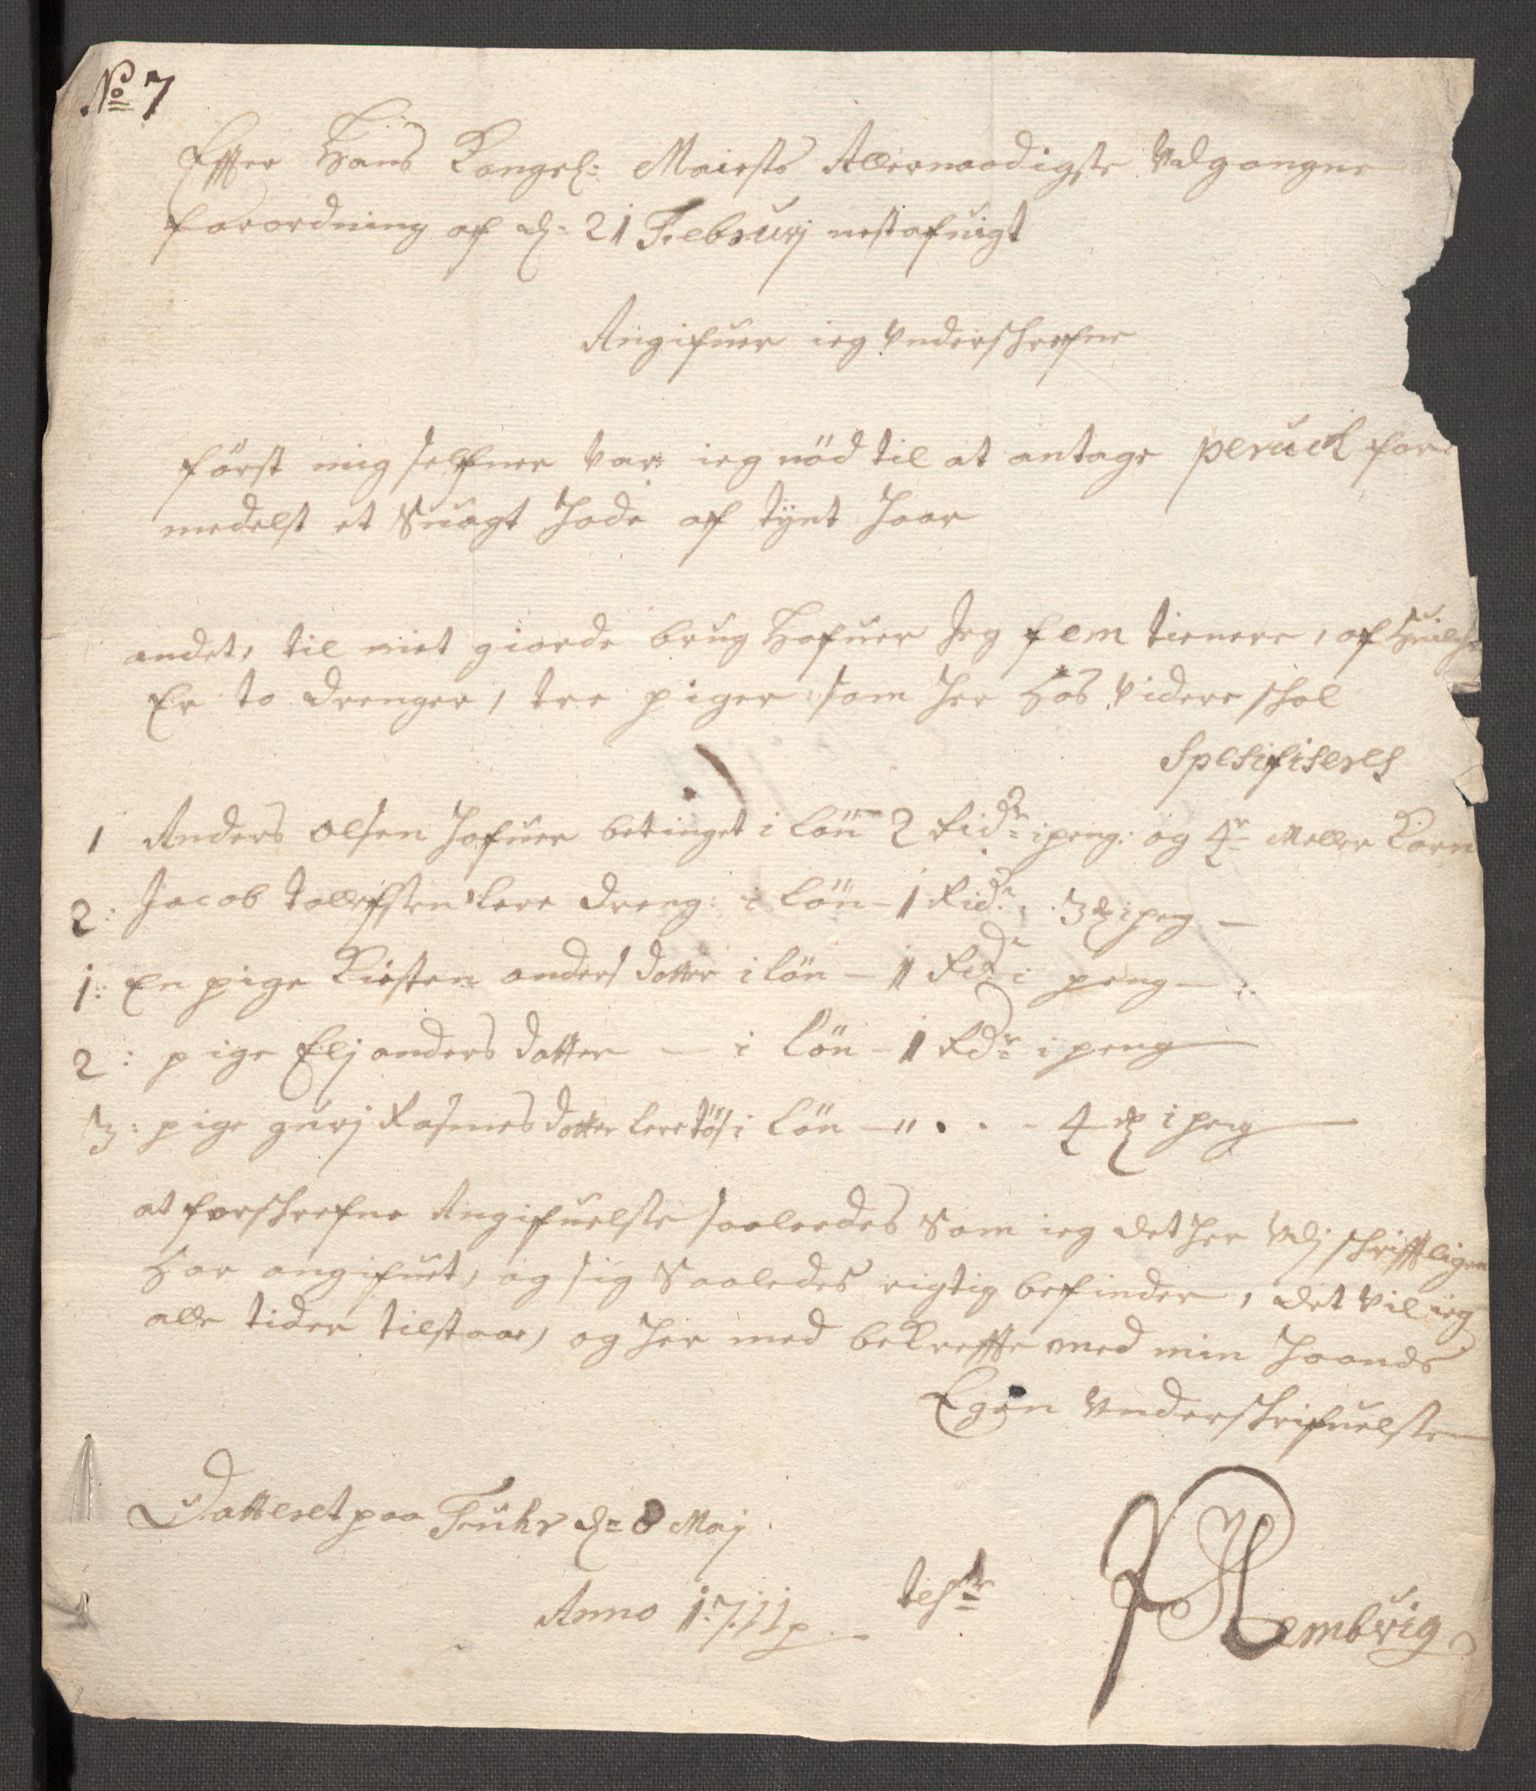 No 7
Effter Hans Kongel: Maiests Allernaadigste Udgangne
forordning af d: 21 Februrj nestafuigt
Angifuer ieg Underschrefne
först mig selfuer var ieg nöd til at antage peruck for
medelst et Suagt Hode af tÿnt Haar
andet, til mit giorde brug Hafuer Jeg fem tienere, af Huilche
Er to drenger, tre piger som her hos videre schal
Spesifiseres
1 Anders Olsen Hafuer betinget i Lön 2 Ridr i peng: og 4r Meller Korn
2: Jacob Tollefsen lere dreng: i Lön - 1 Ridr: 3 i peng -
1: En pige Kirsten anders datter i lön - 1 Rdr i peng -
2: pige Elj anders datter - i Lön - 1 Rdr i peng
3: pige gurj Rasmes datter lere tös i Lön - " . . - 4 i peng
at forschrefne Angifuelse saaledes Som ieg det her Udj schrifftligen
Har angifuet, og sig Saaledes rigtig befinder, det vil ieg
alle tider tilstaae, og her med bekreffte med min Haands
Egen Underschrifuelse
Datteret paa Fruhr d: 8 Maj
Anno 1711
testr
Hembrig